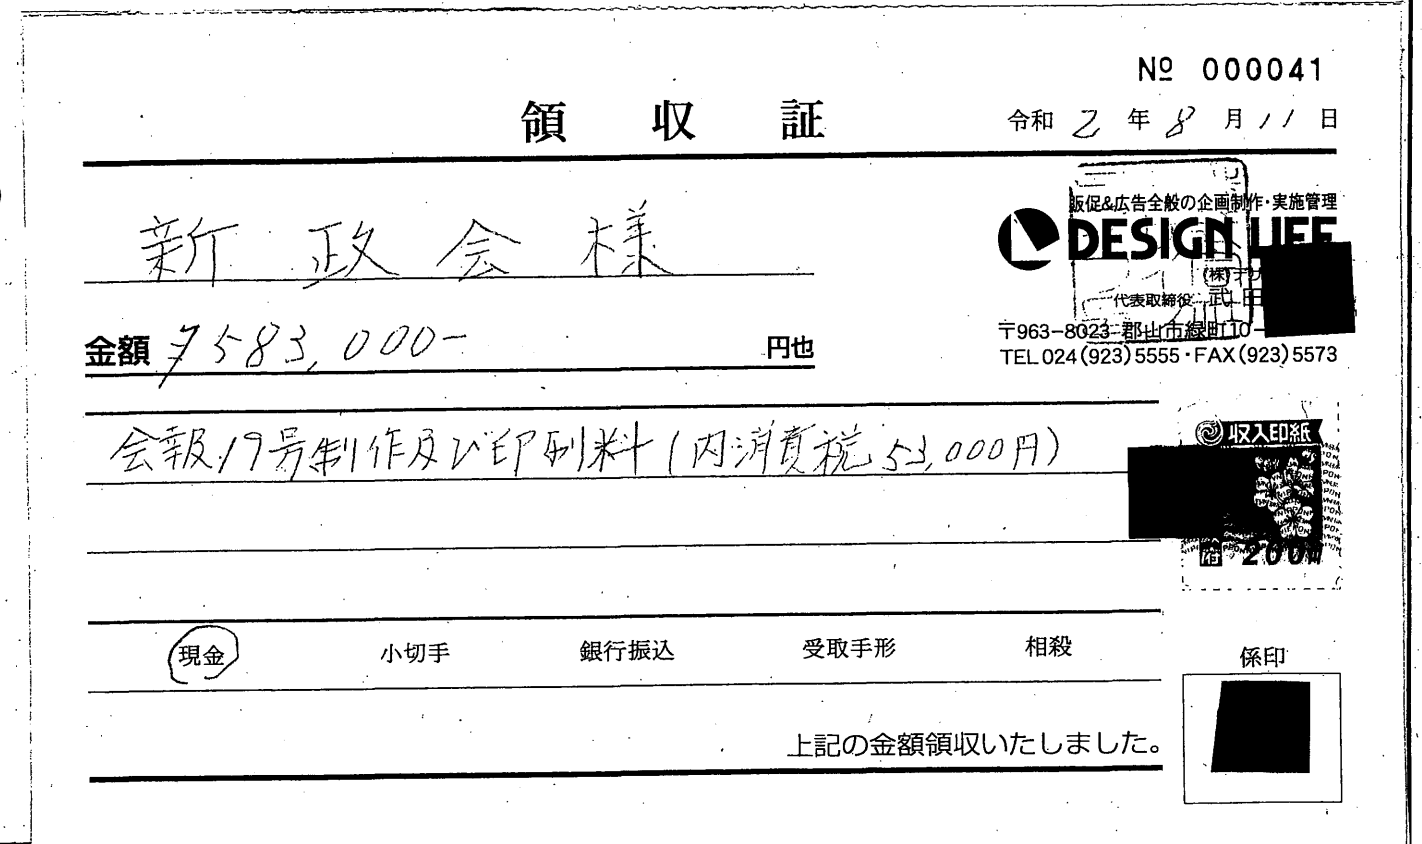 № 000041
領収証
令和 2 年 8 月 11 日
新政会様
販促&広告全般の企画制作・実施管理
DESIGN LIFE
(株)デザ
代表取締役 武田
〒963-8023 郡山市緑町10-
TEL 024(923)5555・FAX(923)5573
金額 ¥583,000- 円也
会報19号制作及び印刷料(内消費税53,000円)
収入印紙
200円
現金 小切手 銀行振込 受取手形 相殺
係印
上記の金額領収いたしました。